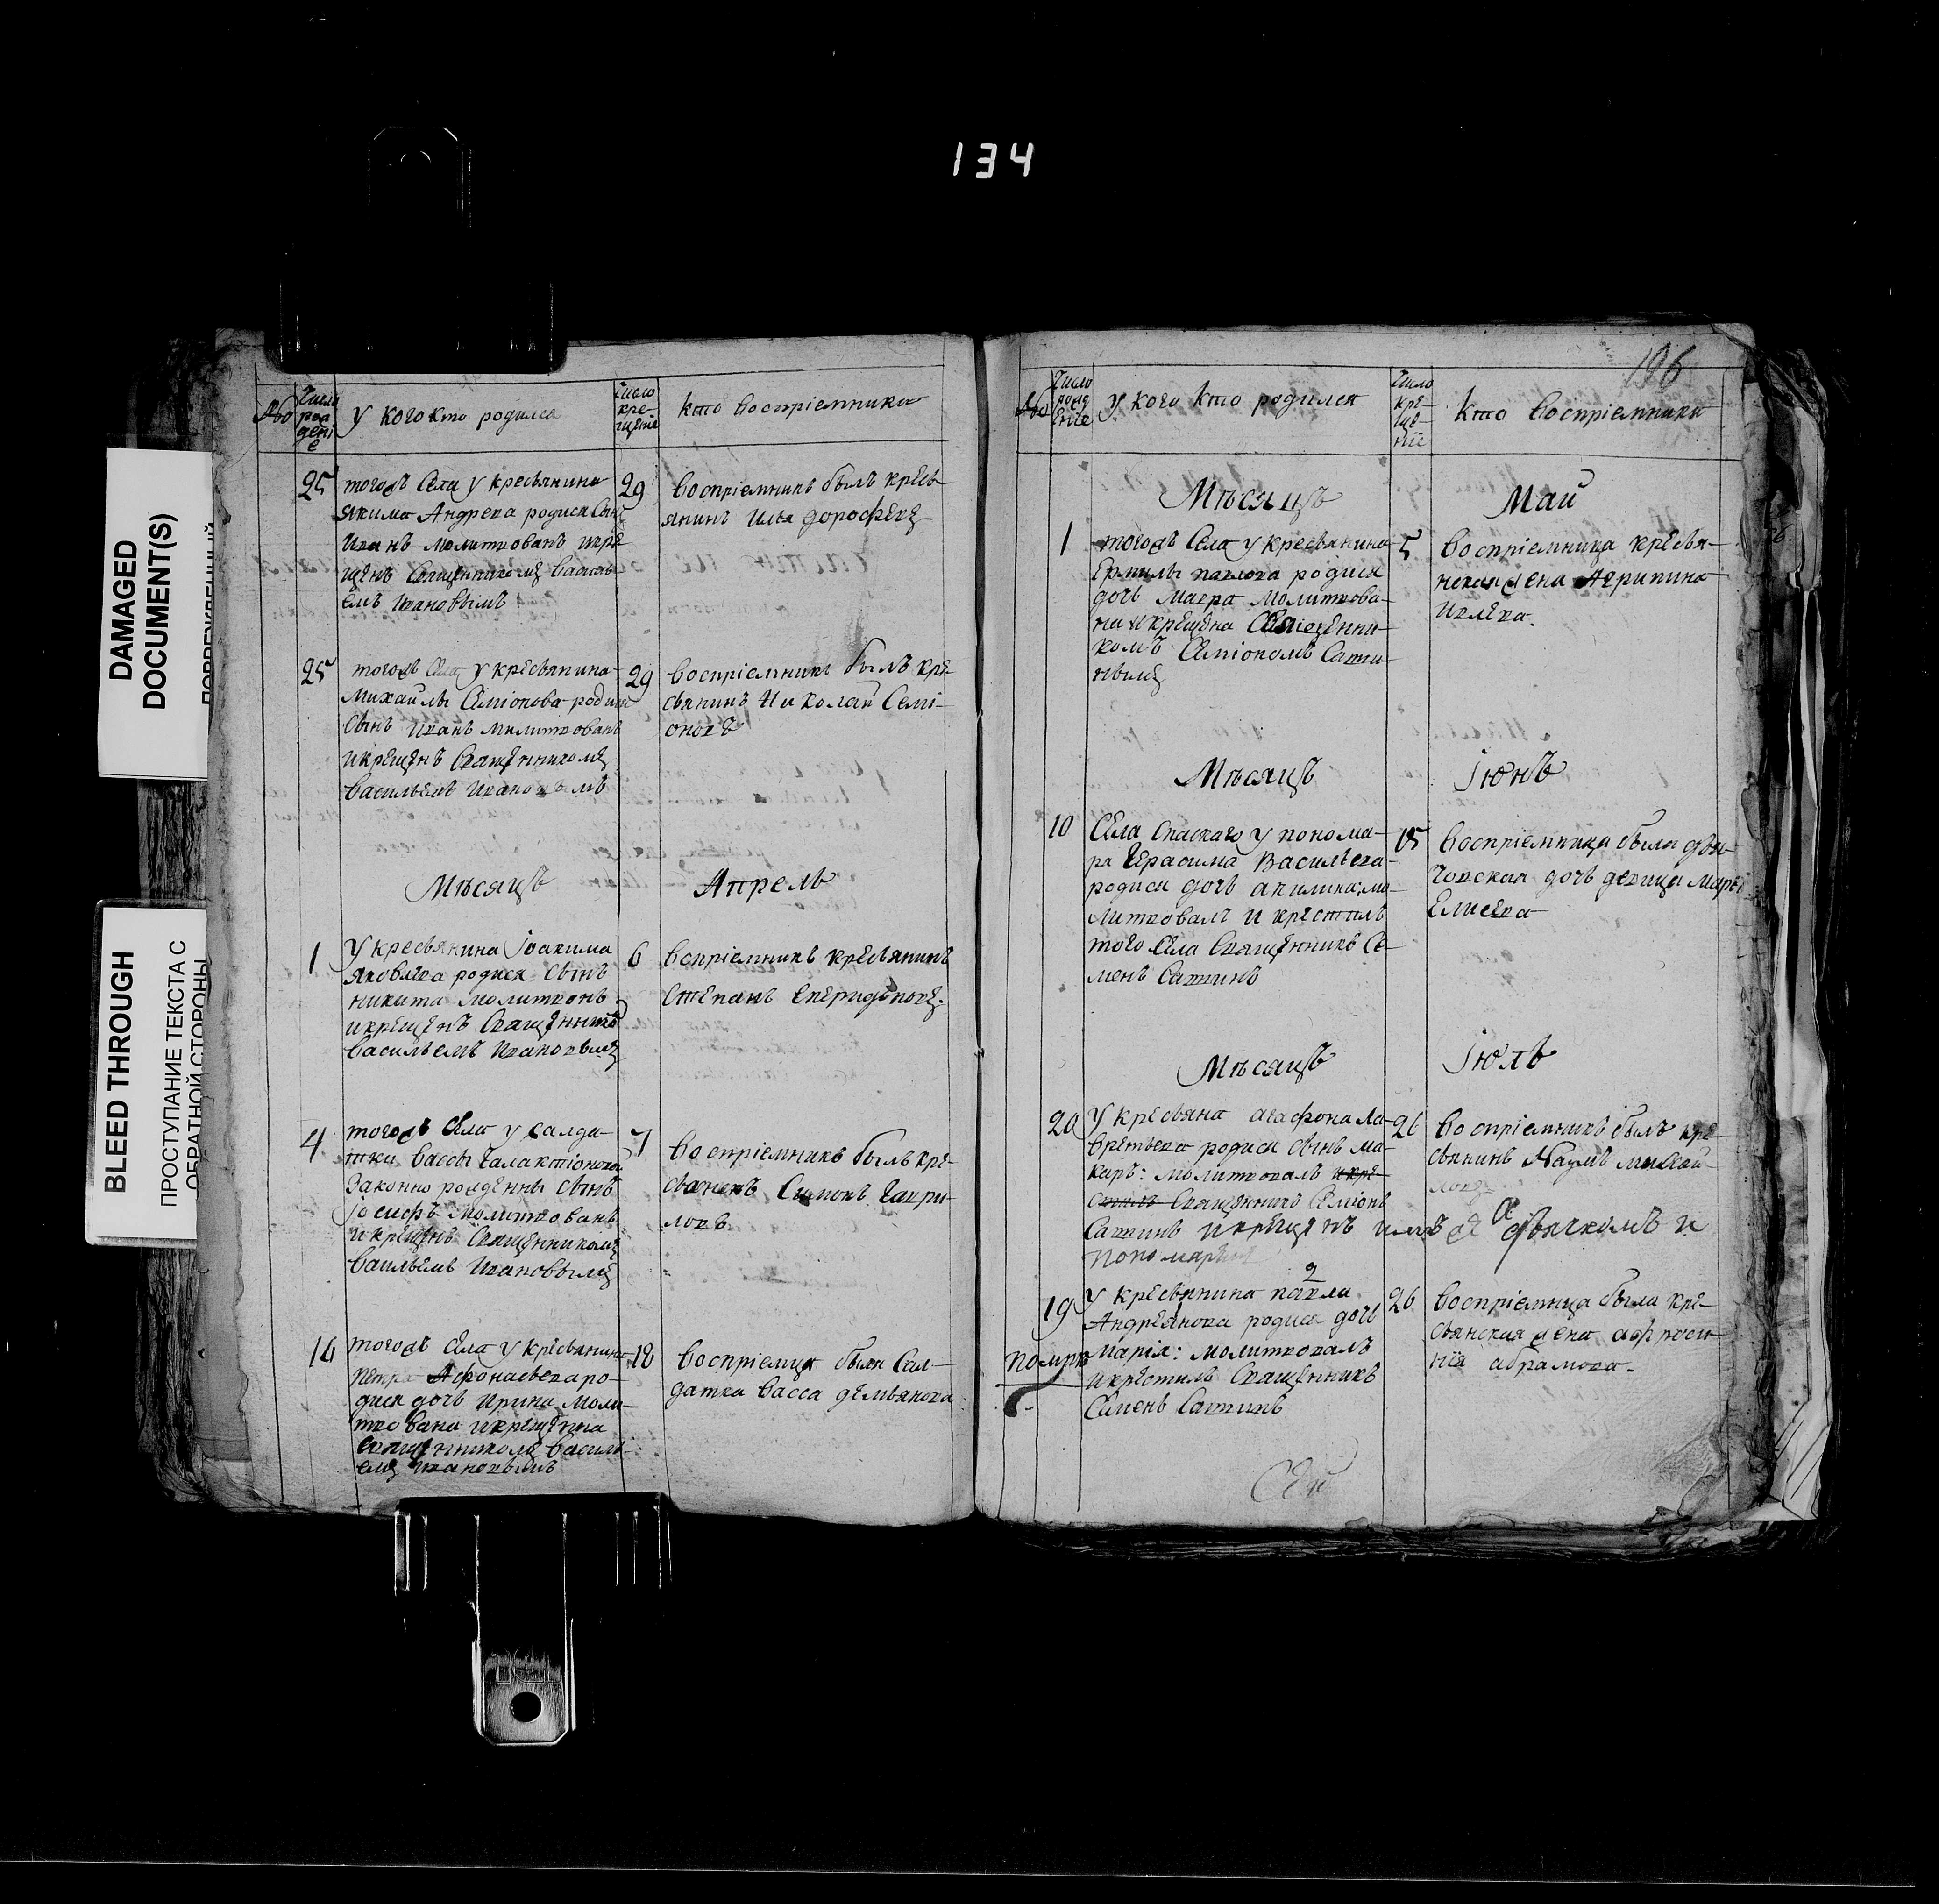 134
DAMAGED
DOCUMENT(S)
BLEED THROUGH
ПРОСТУПАНИЕ ТЕКСТА С
ОБРАТНОЙ СТОРОНЫ
Число
рож
дені
е
у кого кто родился
Число
кре-
щеніе
кто воспріемники
25
тогожъ села у кресьянина
якима Андрева родися сынъ
Иванъ молитвованъ икре
щенъ священникомъ василь
емъ ивановымъ
29
воспріемникъ былъ кресь
янинъ Илья дорофеевъ
25
тогожъ села у кресьянина
Михайлы Семіонова родися
сынъ иванъ молитвованъ
икрещенъ священникомъ
васильемъ ивановымъ
29
воспріемникъ былъ кре-
сьянинъ Николай Семі-
оновъ
Мѣсяцъ
Апрель
1
У кресьянина Іоакима
яковлева родися сынъ
никита молитвонъ
икрещенъ священнико
васильемъ ивановымъ
6
воспріемникъ кресьянинъ
Степанъ
4
тогожъ села у салда-
тки вассы галактіоновой
законно рожденны сынъ
іосифъ молитвованъ
икрещенъ священникомъ
васильемъ ивановымъ
7
воспріемникъ былъ кре-
сьянинъ Симонъ гаври-
ловъ
тогожъ села у кресьянина
петра Афонасьева ро-
дися дочь Ирина моли-
твована икрещенна
священникомъ василь-
емъ ивановымъ
18
воспріемца была Сал-
датка васса демьянова
196
Число
рожд
еніе
У кого кто родился
Число
кре-
ще-
ніе
кто воспріемники
Мѣсяцъ
Май
1
тогожъ села у кресьянина
Ермилы павлова родися
дочь Мавра молитвова-
на икрещена священни-
комъ Семіономъ Сати-
нымъ
5
воспріемница кресья-
нская жена Агрипина
Ивлева.
Мѣсяцъ
Іюнь
10
Села спаскаго у понома-
ря герасима Васильева
родися дочь акилина: мо-
литвовалъ и крестилъ
того села священникъ Се-
менъ Сатинъ
15
воспріемница была дья-
чковская дочь девица марья
Елисева
Мѣсяцъ
Іюль
20
У кресьяна агафона ла-
врентьева родися сынъ ма-
каръ: молитвовалъ икре-
стилъ священникъ Семіонъ
Сатинъ икрещенъ дьячкомъ и
пономаремъ
26
воспріемникъ былъ кре-
сьянинъ Наумъ михай-
ловъ
19
у кресьянина павла
Андреянова родися дочь
марія: молитвовалъ
икрестилъ священникъ
Семенъ Сатинъ
26
воспріемница была кре-
сьянская жена афроси-
нія абрамова.
помре